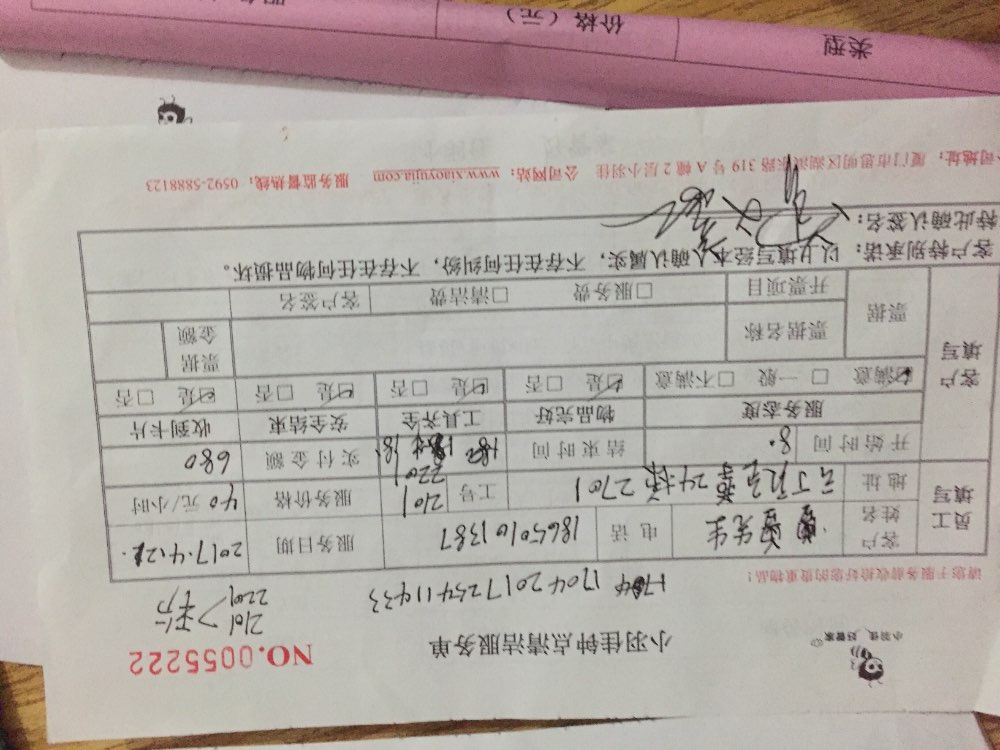 小羽佳 好管家
小羽佳钟点清洁服务单
NO.0055222
1704201725411433
2101
2201
请您于服务前收拾好您的贵重物品！
员工填写
客户姓名 曾先生 电话 18650101387 服务日期 2017.4.21.
地址 24栋2701 工号 2101 2201 服务价格 40元/小时
开始时间 8. 结束时间 18. 实付金额 680
服务态度 物品完好 工具齐全 安全结束 收到卡片
☑满意 □一般 □不满意 ☑是 □否 ☑是 □否 ☑是 □否 ☑是 □否
客户填写
票据 票据名称 票据金额
开票项目 □服务费 □清洁费 客户签名
客户特别承诺：以上填写经本人确认属实，不存在任何纠纷，不存在任何物品损坏。
特此确认签名：
公司地址：厦门市思明区湖滨东路 319 号 A 幢 2 层小羽佳 公司网站：www.xiaoyujia.com 服务监督热线：0592-5888123
类型 价格（元）